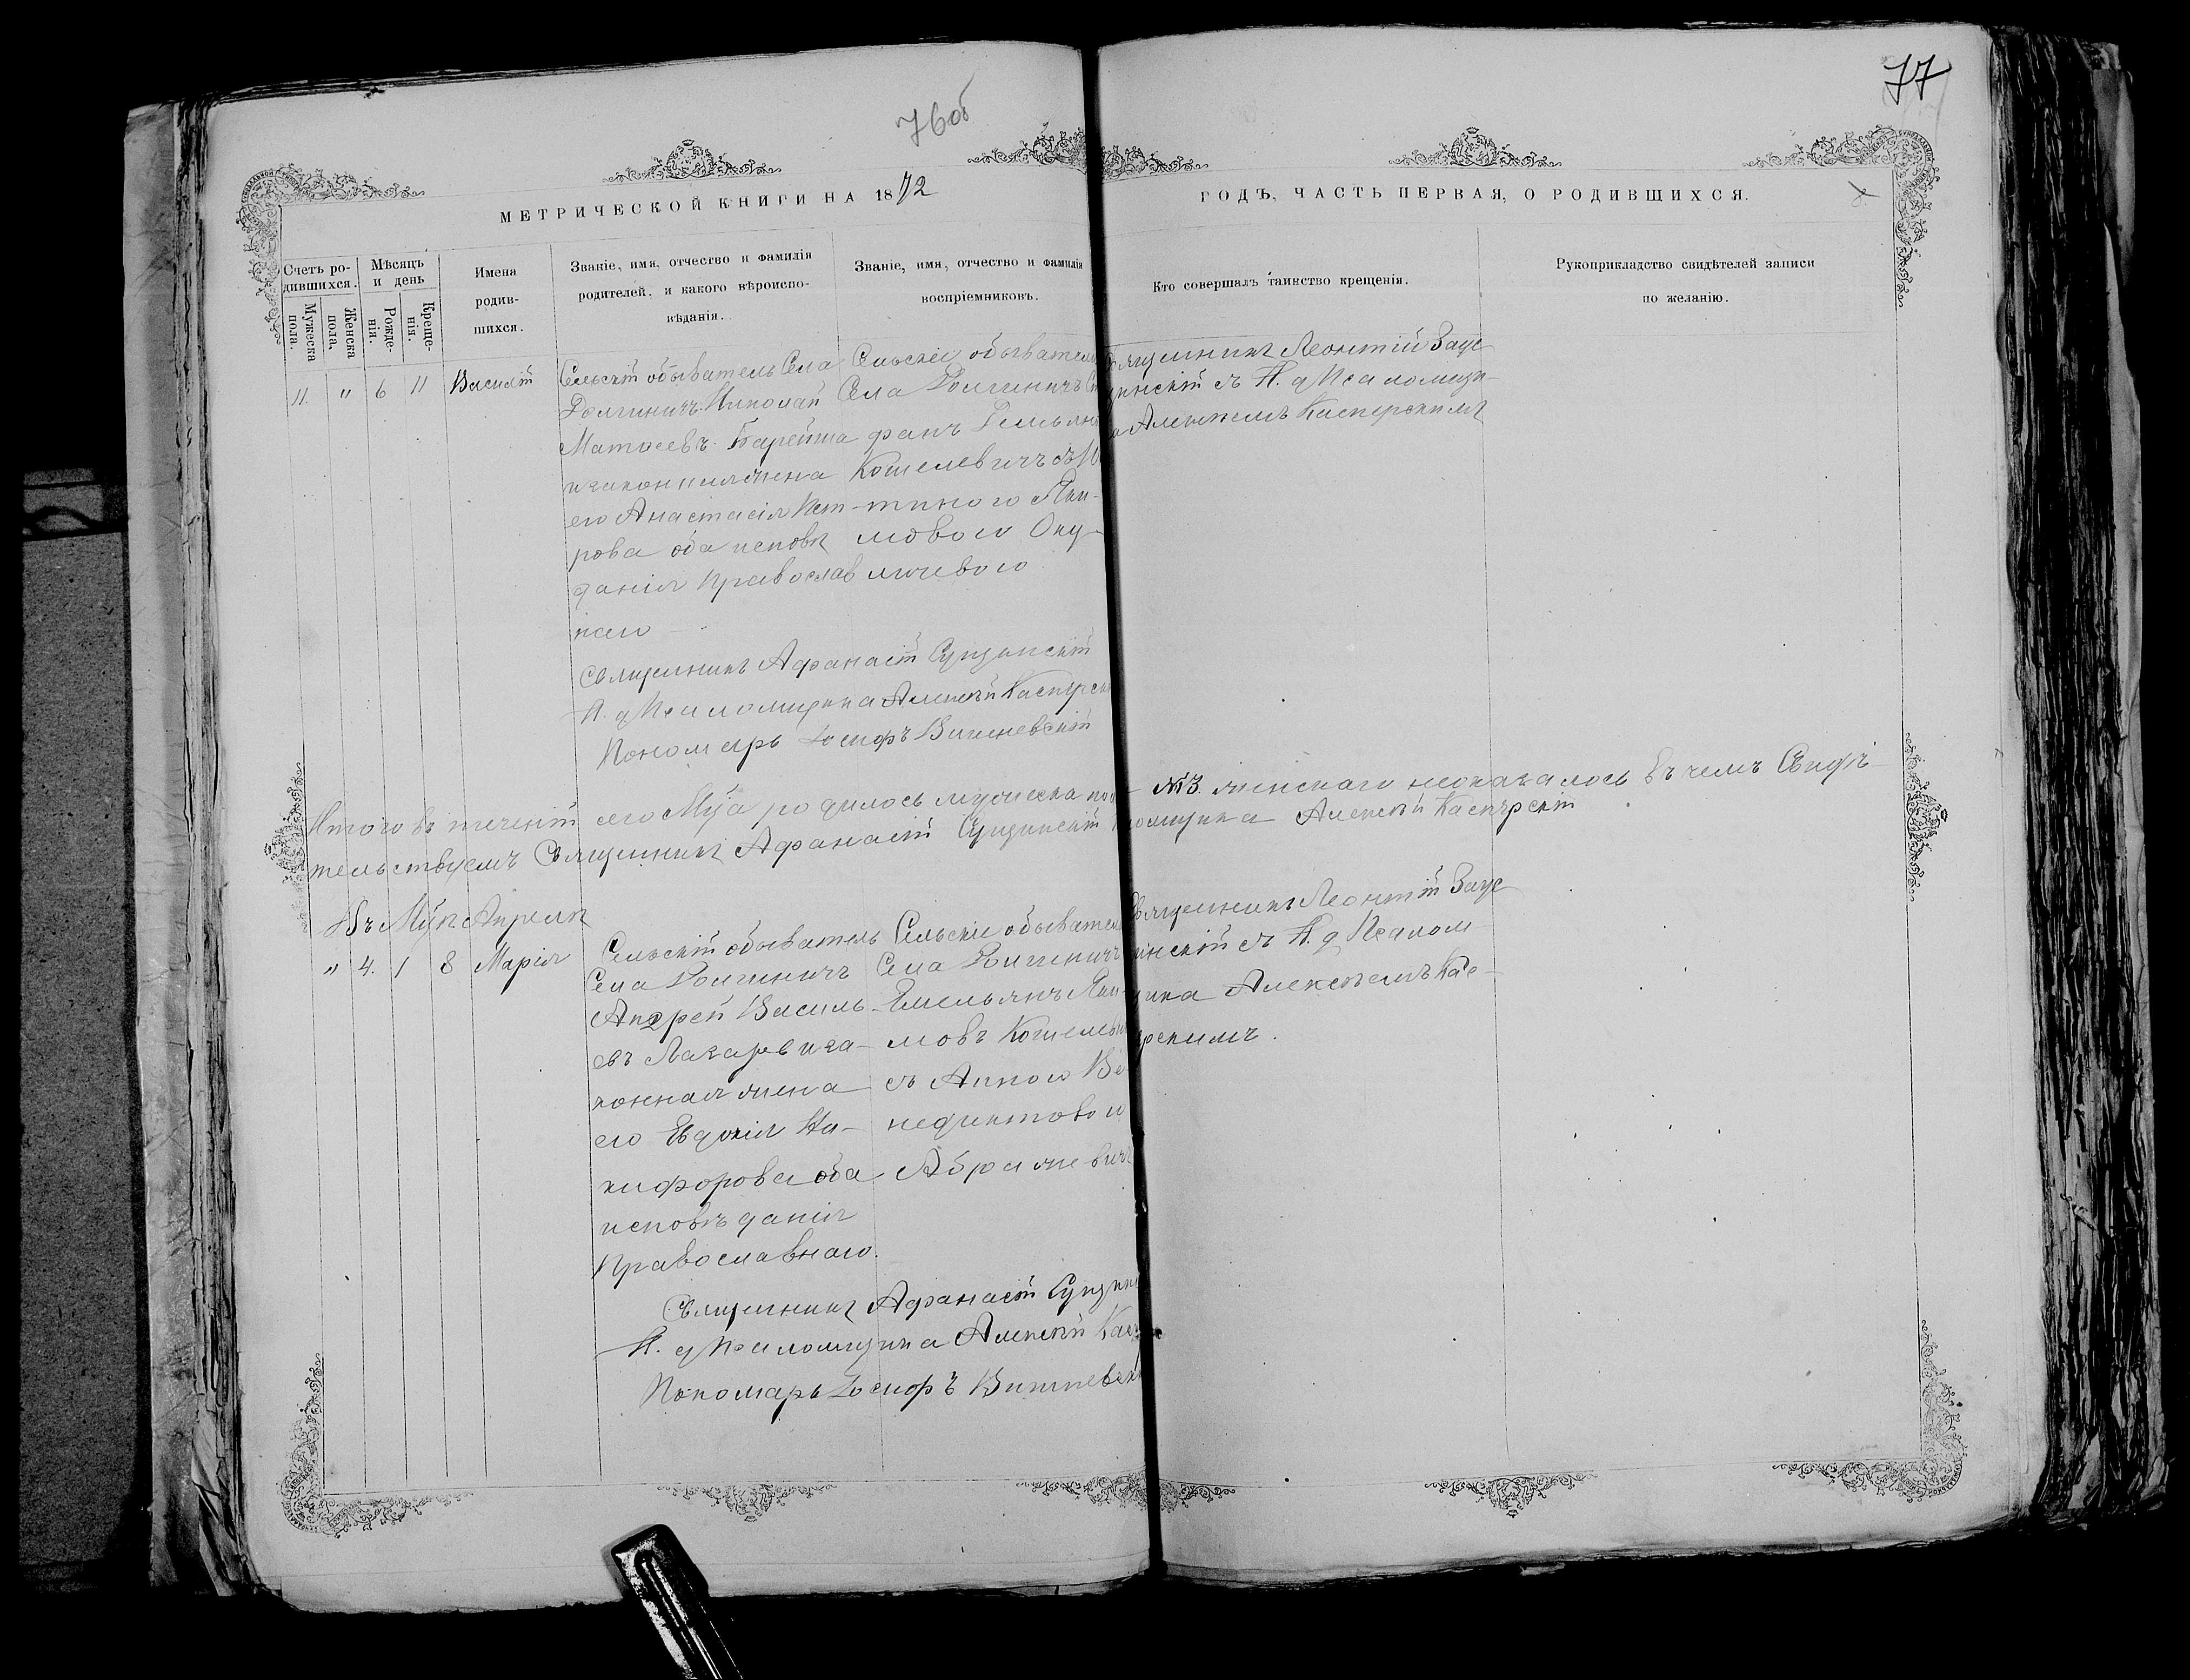 76об
77
МЕТРИЧЕСКОЙ КНИГИ НА 1872
ГОДЪ, ЧАСТЬ ПЕРВАЯ, О РОДИВШИХСЯ.
Счетъ ро-
дившихся.
Мужеска
пола.
Женска
пола.
Мѣсяцъ
и день
Рожде-
нія.
Креще-
нія.
Имена
родив-
шихся.
Званіе, имя, отчество и фамилія
родителей, и какого вѣроиспо-
вѣданія.
Званіе, имя, отчество и фамилія
воспріемниковъ.
Кто совершалъ таинство крещенія.
Рукоприкладство свидѣтелей записи
по желанію.
11. " 6 11 Василій
Сельскій обыватель Села
Долгиничъ Николай
Матвеевъ Барейша
и законная жена
его Анастасія Пет-
рова оба исповѣ
данія Православ
наго
Сельскіе обыватели
Села Долгиничъ
Кошелевичъ съ
мовою
Священникъ Леонтій
съ И. д Псаломщи-
Алексѣемъ Касперскимъ
Священникъ Афанасій
И. д Псаломщика Алексѣй
Пономарь Іосифъ Вишневскій
Итого въ теченіи сего Мца родилось мужеска
№3. женскаго неоказалось въ чемъ Свидѣ-
тельствуемъ Священникъ Афанасій
Алексѣй Касперскій
Въ Мцѣ Апрелѣ
" 4. 1 8 Марія
Сельскій обыватель
Села Долгиничъ
Андрей Василь-
евъ Лазаревича-
конная жена
его Евдокія Ни-
кифорова оба
исповѣданія
Православнаго.
Сельскіе обыватели
Села Долгиничъ
Емельянъ Яки-
мовъ
съ Анною Ве-
недиктовою
Священникъ Леонтій
съ И. д Псалом
щика Алексѣемъ Кас-
перскимъ.
Священникъ Афанасій
И. д Псаломщика Алексѣй
Пономарь Іосифъ